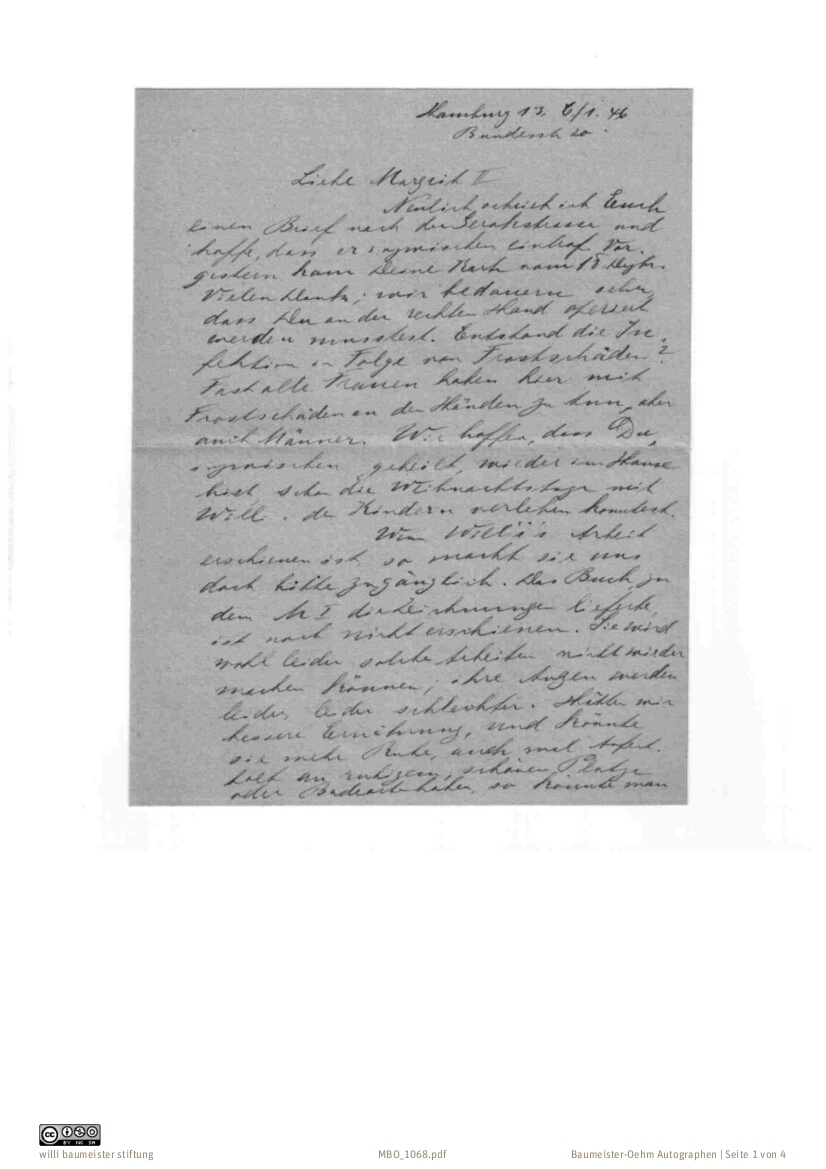 Hamburg 13, 6/1. 46
Bundesstr 20.
Liebe Margrit II
Neulich schrieb ich Euch
einen Brief nach der Gerokstrasse und
hoffe, dass er inzwischen eintraf. Vor-
gestern kam Deine Karte vom 18 Dezbr.
Vielen Dank; wir bedauern sehr,
dass Du an der rechten Hand operiert
werden musstest. Entstand die In-
fektion in Folge von Frostschäden?
Fast alle Frauen haben hier mit
Frostschäden an den Händen zu tun, aber
auch Männer. Wir hoffen, dass Du,
inzwischen geheilt, wieder im Hause
bist, schon die Weihnachtstage mit
Willi u. den Kindern verleben konntest.
Wenn Willi's Arbeit
erschienen ist, so macht sie uns
doch bitte zugänglich. Das Buch, zu
dem M I die Zeichnungen lieferte,
ist noch nicht erschienen. Sie wird
wohl leider solche Arbeiten nicht wieder
machen können; ihre Augen werden
leider, leider schlechter. Hätten wir
bessere Ernährung, und könnte
sie mehr Ruhe, auch mal Aufent-
halt an ruhigem, schönen Platze
oder Badeorte haben, so könnte man
CC BY NC SA
willi baumeister stiftung
MBO_1068.pdf
Baumeister-Oehm Autographen | Seite 1 von 4